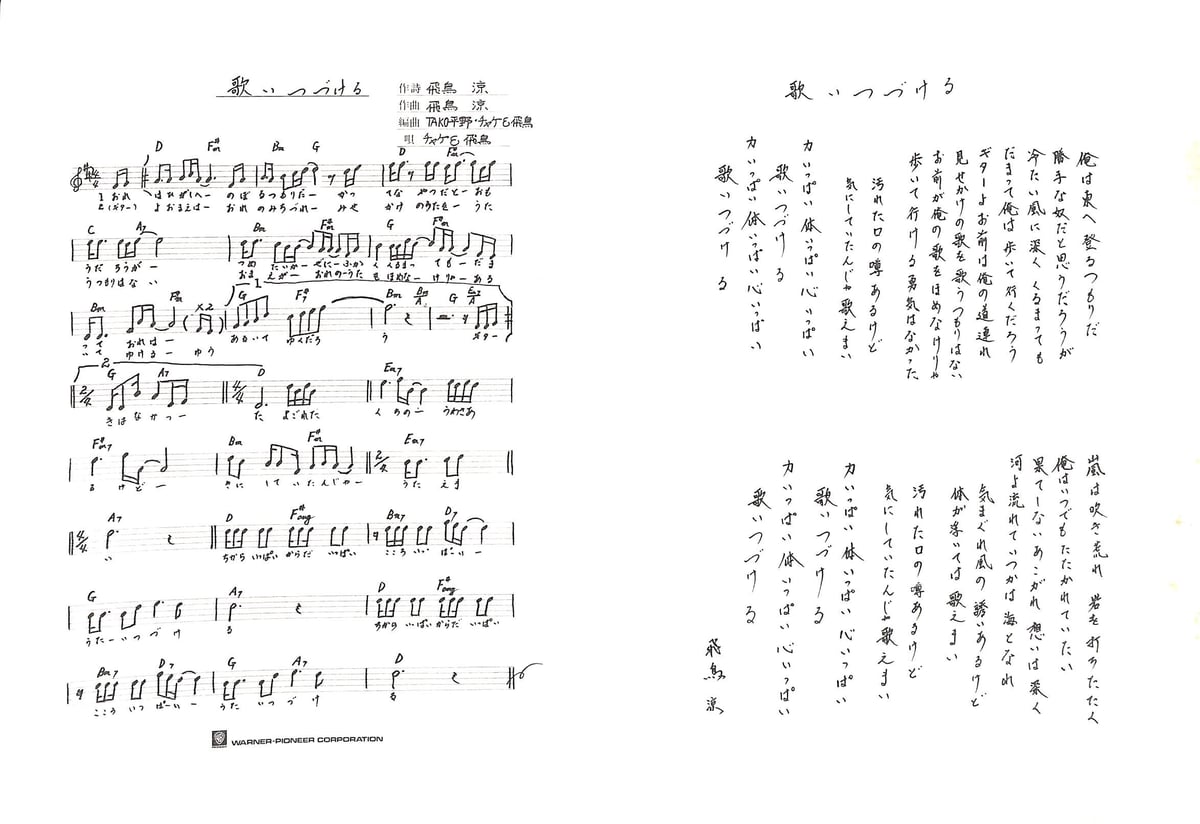 歌いつづける
作詩 飛鳥 涼
作曲 飛鳥 涼
編曲 TAKO平野・チャゲ&飛鳥
唄 チャゲ&飛鳥
D F#m Bm G D F#m
1 おれ はひがしへー のぼるつもりだー かっ てな やつだとー おも
2 (ギター) よおまえはー おれのみちづれー みせ かけのうたをー うた
C A7 Bm F#m G F#m
うだ ろうがー つめ たいかー ぜにーふか くくるまっ てもーだま
うつもりはない おまえがー おれのーうた をほめな けりゃーある
Bm F#m ×2 1 G F#7 Bm G
って おれはー あるいて ゆくだろ う ギター
いて ゆけるー ゆう
2 G A7 D Em7
きはなかっー た よごれた くちのー うわさあ
F#m7 Bm F#m Em7
るけどー きに していたんじゃー うたえま
A7 D F#aug Bm7 D7
い ちから いっぱい からだ いっぱい こころ いっぱいー
G A7 D F#aug
うたーいつづけ る ちから いっぱい からだ いっぱい
Bm7 D7 G A7 D
こころ いっ ぱーいー うた いつづけ る
WARNER-PIONEER CORPORATION
歌いつづける
俺は東へ登るつもりだ
勝手な奴だと思うだろうが
冷たい風に深くくるまっても
だまって俺は歩いて行くだろう
ギターよお前は俺の道連れ
見せかけの歌を歌うつもりはない
お前が俺の歌をほめなけりゃ
歩いて行ける勇気はなかった
汚れた口の噂あるけど
気にしていたんじゃ歌えまい
力いっぱい体いっぱい心いっぱい
歌いつづける
力いっぱい体いっぱい心いっぱい
歌いつづける
嵐は吹き荒れ 岩を打ちたたく
俺はいつでもたたかれていたい
果てしないあこがれ想いは深く
河よ流れていつかは海となれ
気まぐれ風の誘いあるけど
体が浮いては歌えまい
汚れた口の噂あるけど
気にしていたんじゃ歌えまい
力いっぱい体いっぱい心いっぱい
歌いつづける
力いっぱい体いっぱい心いっぱい
歌いつづける
飛鳥 涼